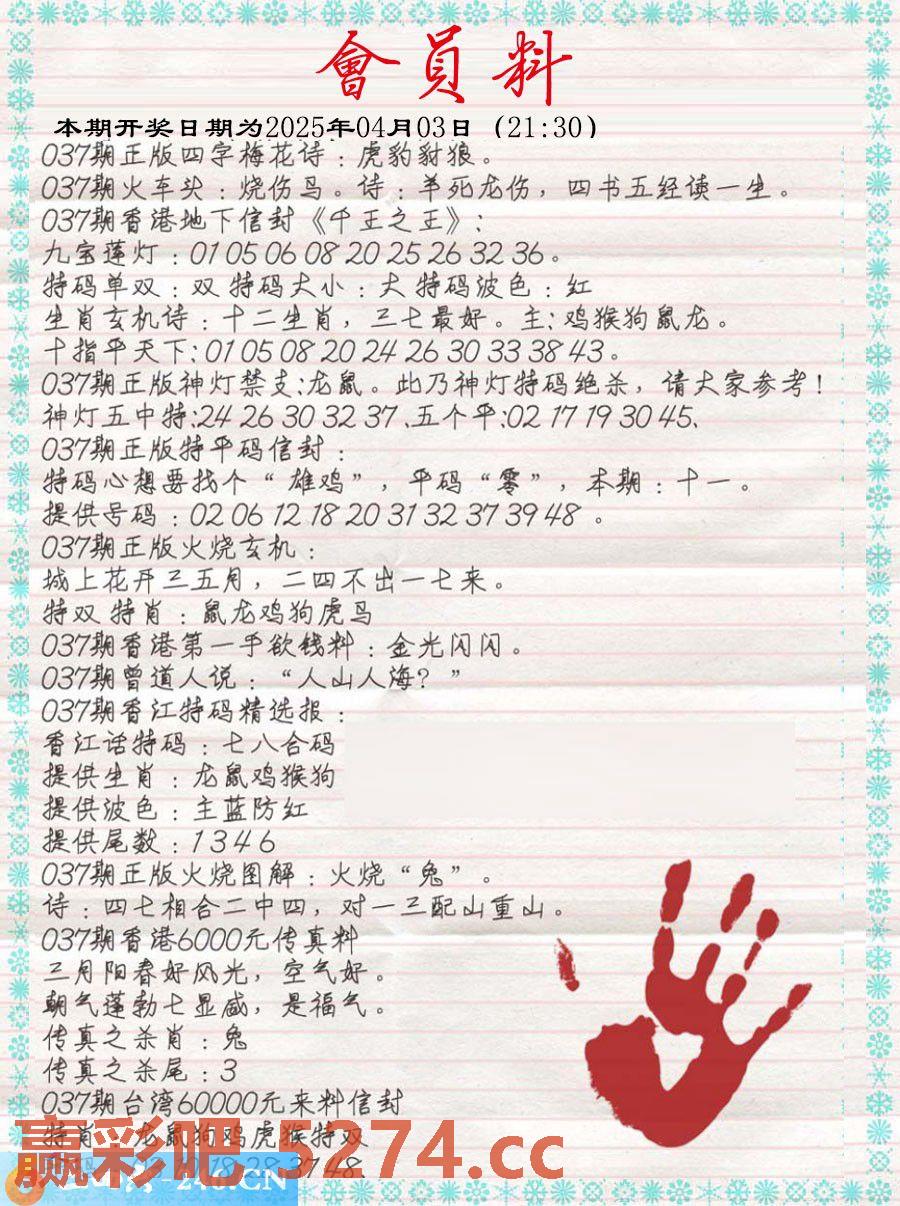 會員料
本期开奖日期为2025年04月03日（21:30）
037期正版四字梅花诗：虎豹豺狼。
037期火车头：烧伤鸟。诗：羊死龙伤，四书五经读一生。
037期香港地下信封《千王之王》：
九宝莲灯：01 05 06 08 20 25 26 32 36。
特码单双：双 特码大小：大 特码波色：红
生肖玄机诗：十二生肖，三七最好。主：鸡猴狗鼠龙。
十指平天下：01 05 08 20 24 26 30 33 38 43。
037期正版神灯禁支：龙鼠。此乃神灯特码绝杀，请大家参考！
神灯五中特：24 26 30 32 37、五个平：02 17 19 30 45、
037期正版特平码信封：
特码心想要找个“雄鸡”，平码“零”，本期：十一。
提供号码：02 06 12 18 20 31 32 37 39 48 。
037期正版火烧玄机：
城上花开三五月，二四不出一七来。
特双 特肖：鼠龙鸡狗虎马
037期香港第一手欲钱料：金光闪闪。
037期曾道人说：“人山人海？”
037期香江特码精选报：
香江话特码：七八合码
提供生肖：龙鼠鸡猴狗
提供波色：主蓝防红
提供尾数：1 3 4 6
037期正版火烧图解：火烧“兔”。
诗：四七相合二中四，对一三配山重山。
037期香港6000元传真料
三月阳春好风光，空气好。
朝气蓬勃七显威，是福气。
传真之杀肖：兔
传真之杀尾：3
037期台湾60000元来料信封
特肖：龙鼠狗鸡虎猴特双
18 28 37 48
赢彩吧.3274.cc